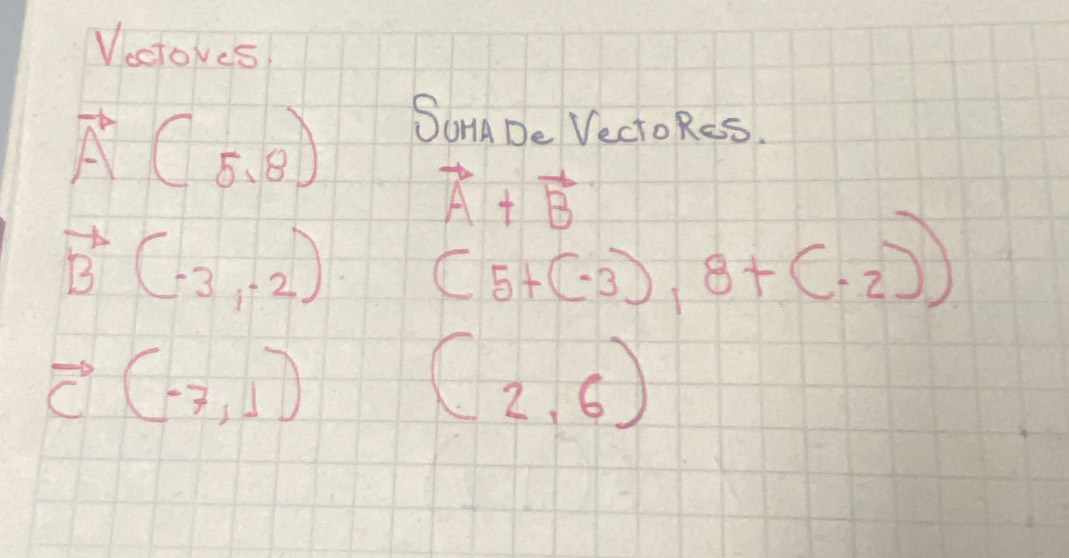 Vectores.
A⃗ (5,8)
B⃗ (-3,-2)
C⃗ (-7,1)
SUMA De VectoRes.
A⃗ + B⃗
(5+(-3), 8+(-2))
(2,6)